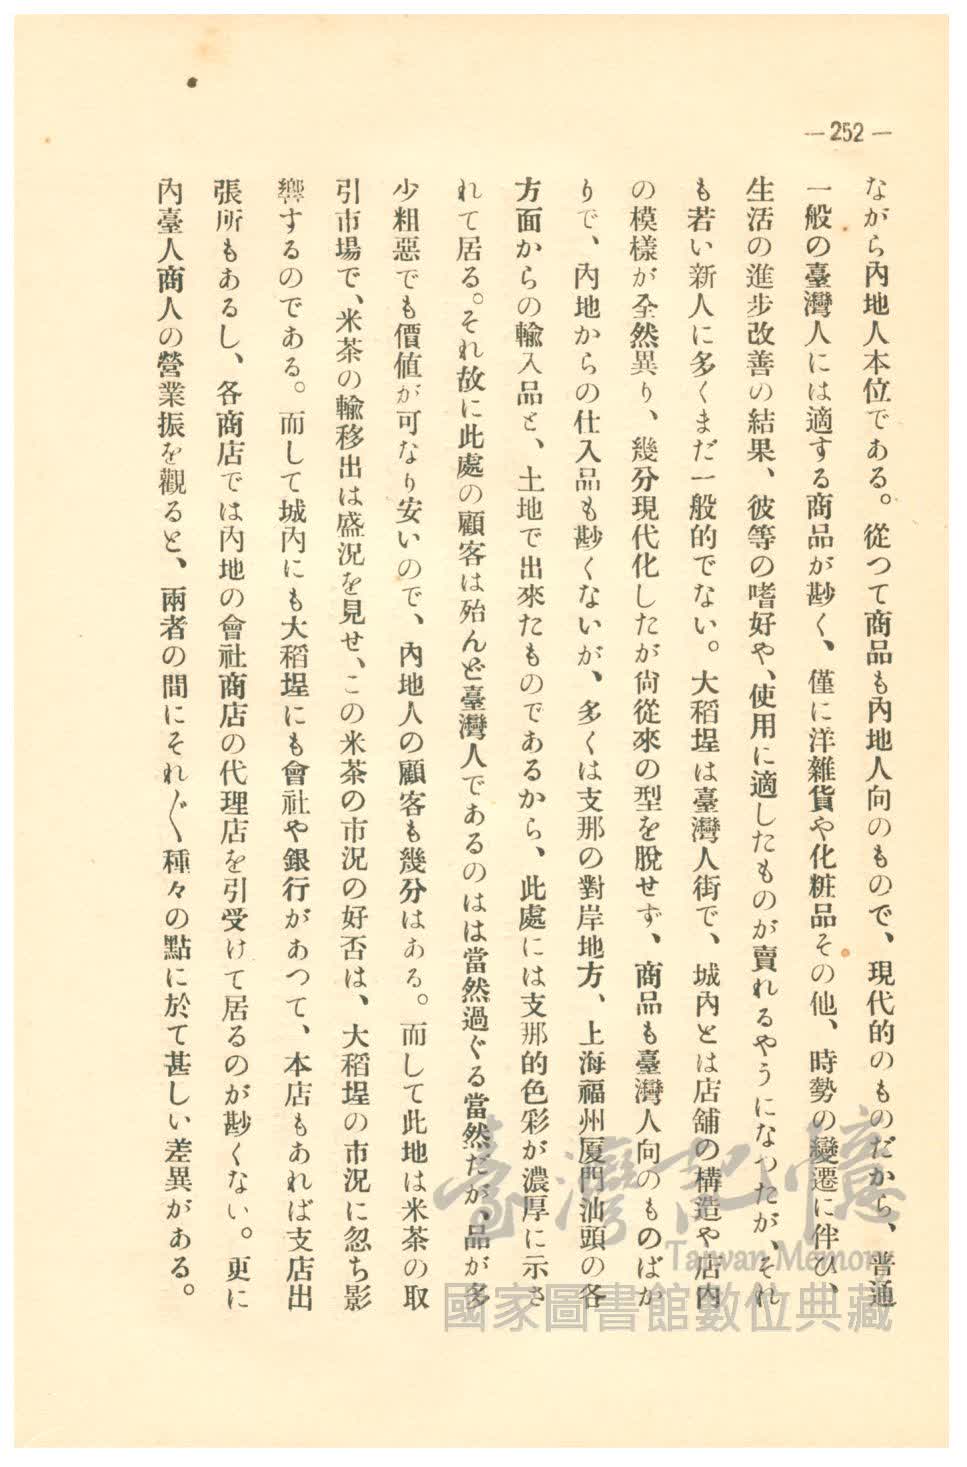 —252—
ながら內地人本位である。從つて商品も內地人向のもので、現代的のものだから、普通
一般の臺灣人には適する商品が尠く、僅に洋雜貨や化粧品その他、時勢の變遷に伴ひ、
生活の進步改善の結果、彼等の嗜好や、使用に適したものが賣れるやうになつたが、それ
も若い新人に多くまだ一般的でない。大稻埕は臺灣人街で、城內とは店舖の構造や店內
の模樣が全然異り、幾分現代化したが尙從來の型を脫せず、商品も臺灣人向のものばか
りで、內地からの仕入品も尠くないが、多くは支那の對岸地方、上海福州厦門汕頭の各
方面からの輸入品と、土地で出來たものであるから、此處には支那的色彩が濃厚に示さ
れて居る。それ故に此處の顧客は殆んど臺灣人であるのはは當然過ぐる當然だが、品が多
少粗惡でも價値が可なり安いので、內地人の顧客も幾分はある。而して此地は米茶の取
引市場で、米茶の輸移出は盛況を見せ、この米茶の市況の好否は、大稻埕の市況に忽ち影
響するのである。而して城內にも大稻埕にも會社や銀行があつて、本店もあれば支店出
張所もあるし、各商店では內地の會社商店の代理店を引受けて居るのが尠くない。更に
內臺人商人の營業振を觀ると、兩者の間にそれ〴〵種々の點に於て甚しい差異がある。
臺灣記憶
Taiwan Memory
國家圖書館數位典藏